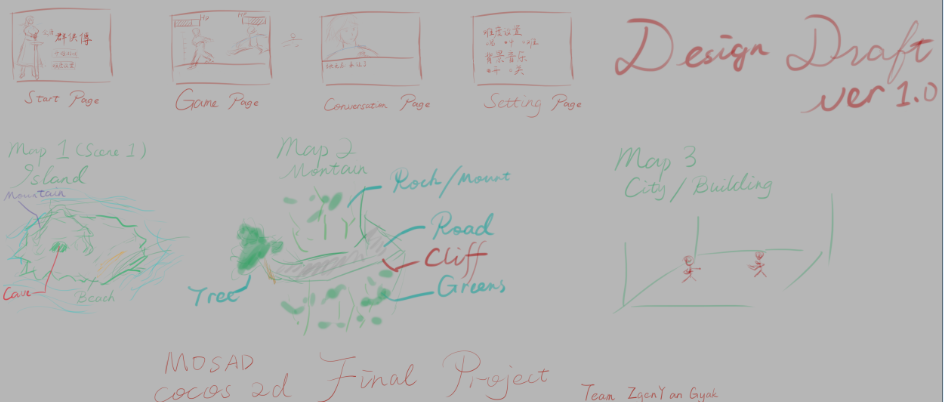 群侠傳
难度设置
背景音乐
Start Page
Game Page
Conversation Page
Setting Page
Design Draft
ver 1.0
Map 1 (Scene 1)
Island
Mountain
Cave
Beach
Map 2
Montain
Rock/Mount
Road
Cliff
Greens
Tree
Map 3
City/Building
MOSAD
cocos 2d Final Project
Team ZgenYan Gyak